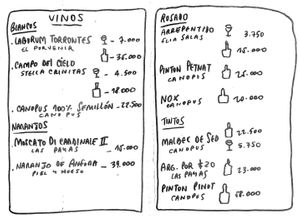 VINOS
BLANCOS
. LABORUM TORRONTES - 7.000
EL PORVENIR - 35.000
. CAMPO DEL CIELO - 4.500
STELLA CRINITAS - 18.000
. CANOPUS 100% SEMILLÓN - 22.500
CANOPUS
NARANJOS
. MOSCATO DI CARDINALE II
LAS PAYAS - 15.000
. NARANJO DE ANFORA - 39.000
PIEL Y HUESO
ROSADO
ARREPENTIDO 3.750
ELIA SALAS 15.000
PINTOM PETNAT 25.000
CANOPUS
NOX 20.000
CANOPUS
TINTOS
22.500
MALBEC DE SED 5.750
CANOPUS
ARG. POR $20 23.000
LAS PAYAS
PINTOM PINOT 58.000
CANOPUS